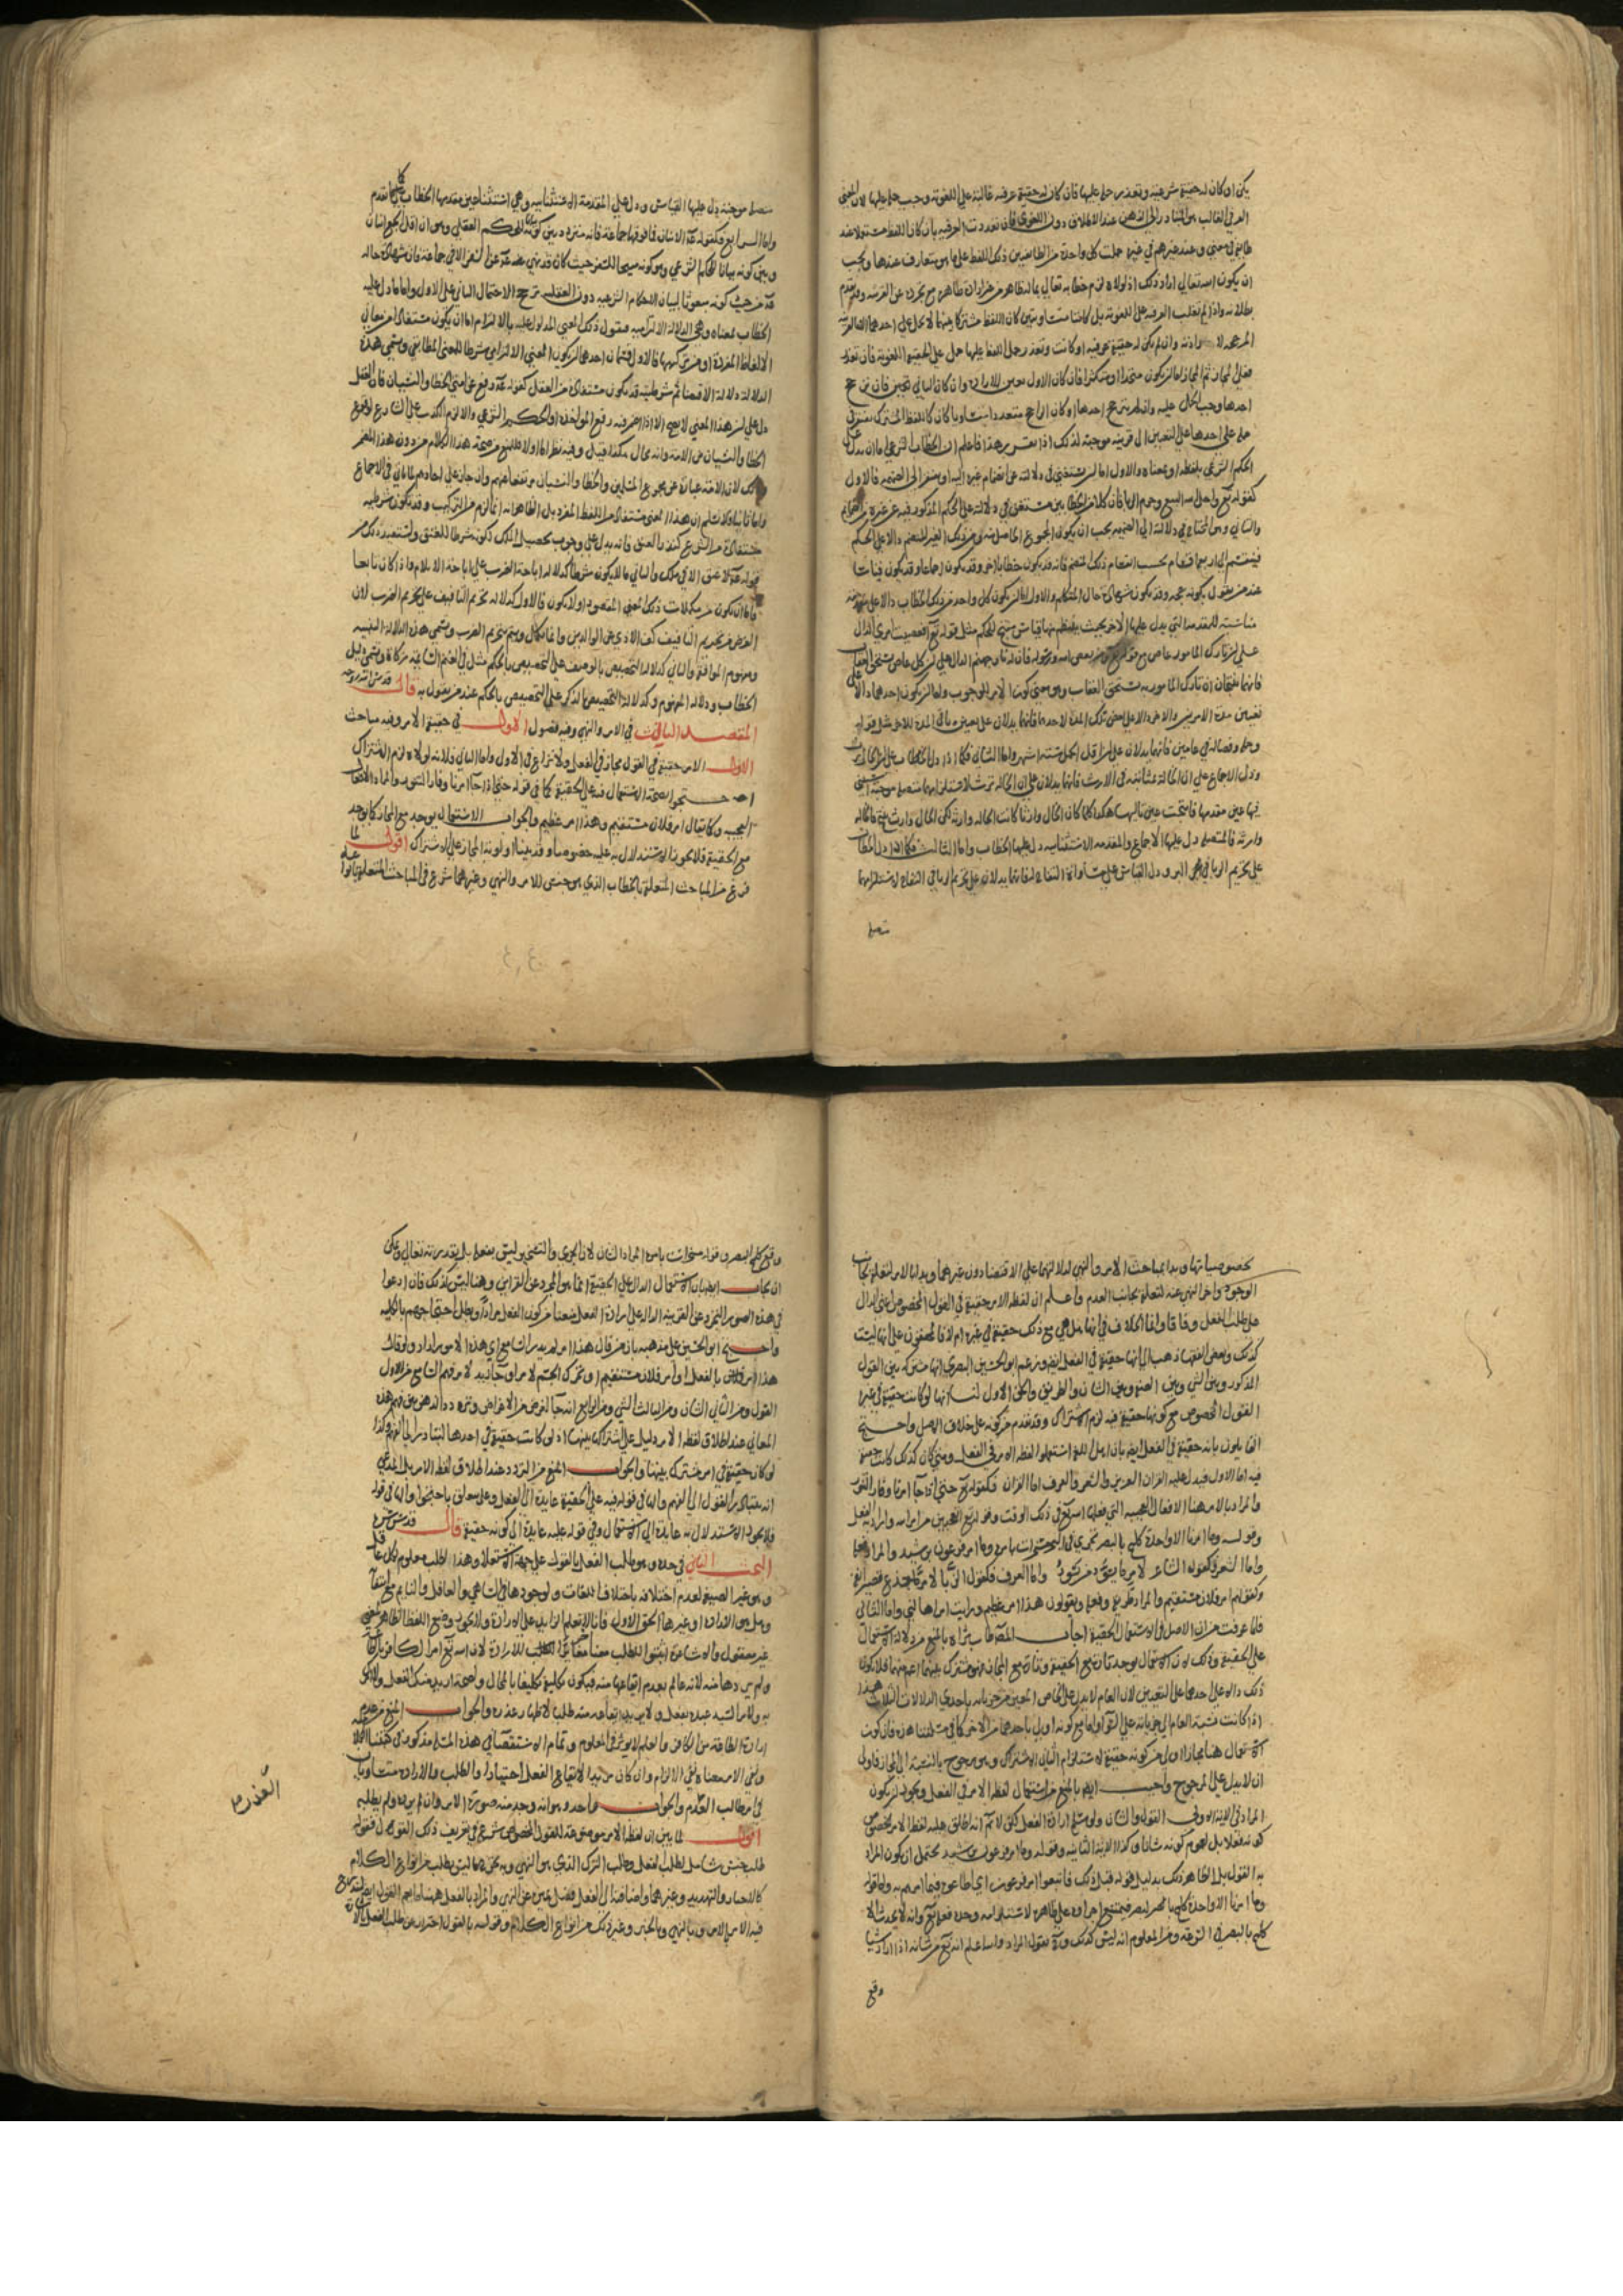 يكن او كان له حقيقة شرعية وتعذر حمله عليها فان كان له حقيقة عرفية غالبة على اللغوية وجب حمله عليها لان المعنى
العرفي الغالب هو المتبادر الى الذهن عند الاطلاق دون اللغوي فان تعددت العرفية بان كان اللفظ متداولا عند
طايفة في معنى وعند غيرهم في غيره حملت كل واحدة من الطايفتين ذلك اللفظ على ما هو متعارف عندها ويجب
ان يكون الله تعالى اراد ذلك اذ لولاه لزم خطابه تعالى بما له ظاهر مع ارادة غير ظاهره مع تجرده عن القرينة وقد تقدم
بطلانه واذا لم تغلب العرفية على اللغوية بل كانتا متساويتين كان اللفظ مشتركا بينهما لا يحمل على احدهما الا لقرينة
وان لم يكن له حقيقة عرفية او كانت وتعذر حمل اللفظ عليها حمل على الحقيقة اللغوية فان تعذر
فعلى المجاز ثم المجاز اما ان يكون متحدا او متكثرا فان كان الاول تعين للارادة وان كان الثاني فان ترجح
احدها وجب الحمل عليه وان لم يترجح احدها او كان الراجح متعددا متساويا كان كاللفظ المشترك يفتقر في
حمله على احدها على التعيين الى قرينة موجبة لذلك اذا تقرر هذا فاعلم ان الخطاب الشرعي اما ان يدل على
الحكم الشرعي بلفظه او بمعناه والاول اما ان يستغني في دلالته عن انضمام غيره اليه او يفتقر الى الضميمة فالاول
كقوله تع واحل الله البيع وحرم الربا فان كلا من الخطابين مستغن في دلالته على الحكم المذكور فيه عن غيره
والثاني وهو المحتاج في دلالته الى الضميمة يجب ان يكون المجموع الحاصل منه ومن ذلك الغير المنضم دالا على الحكم
فينقسم الى اربعة اقسام بحسب انقسام ذلك المنضم فانه قد يكون خطابا اخر وقد يكون اجماعا وقد يكون قياسا
عند من يقول بكونه حجة وقد يكون شهادة حال المتكلم والاول اما ان يكون كل واحد من ذينك الخطاب دالا على مقدمة
مناسبة للمقدمة التي يدل عليها الاخر بحيث ينتظم منهما قياس منتج للحكم مثل قوله تع افعصيت امري الدال
على ان تارك المامور عاص مع قوله تع ومن يعص الله ورسوله فان له نار جهنم الدال على ان كل عاص يستحق العقاب
فانهما ينتجان ان تارك المامور به يستحق العقاب وهو معنى كون الامر للوجوب واما ان يكون احدهما دالا على
تعيين مدة الامرين والاخر دالا على بعض تلك المدة لاحدهما فانهما يدلان على تعيين باقي المدة للاخر مثل قوله
وحمله وفصاله في عامين فانهما يدلان على ان اقل الحمل ستة اشهر واما الثاني فكما اذا دل الخطاب على ان الخال يرث
ودل الاجماع على ان الخالة بمثابته في الارث فانهما يدلان على ان الخالة ترث
فيها عين مقدمها فانتجت عين تاليها هكذا كلما كان الخال وارثا كانت الخالة وارثة لكن الخال وارث ينتج فالخالة
وارثة فالمتصلة دل عليها الاجماع والمقدمة الاستثنائية دل عليها الخطاب واما الثالث فكما اذا دل الخطاب
على تحريم الربا في البر ودل القياس على مساواة التفاح له فانهما يدلان على تحريم الربا في التفاح لاستلزامهما
متصلة
متصلة موجبة دل عليها القياس ودل على المقدمة الاستثنائية وهي استثناء عين مقدمها الخطاب كما تقدم
واما الرابع فكقوله عم الاثنان فما فوقهما جماعة فانه متردد بين كونه للحكم العقلي وهو ان اقل الجمع اثنان
وبين كونه بيانا للحكم الشرعي وهو كونه مبيحا للسفر حيث كان قد نهى عم عن السفر الا في جماعة فان شهادة حاله
عم من حيث كونه مبعوثا لبيان الاحكام الشرعية دون العقلية ترجح الاحتمال الثاني على الاول واما ما دل عليه
الخطاب بمعناه وهي الدلالة الالتزامية فنقول ذلك المعنى المدلول عليه بالالتزام اما ان يكون مستفادا من معاني
الالفاظ المفردة او من تركيبها فالاول قسمان احدهما ان يكون المعنى الالتزامي شرطا للمعنى المطابقي وتسمى هذه
الدلالة دلالة الاقتضاء ثم شرطيته قد يكون مستفادة من العقل كقوله عم رفع عن امتي الخطا والنسيان فان العقل
دل على ان هذا المعنى لا يصح الا اذا اضمر فيه رفع المؤاخذة او الحكم الشرعي والا لزم الكذب على الشارع لوقوع
الخطا والنسيان من الامة وانه محال هكذا قيل وفيه نظر اما اولا فللمنع من صحة هذا الكلام من دون هذا المضمر
لان الامة عبارة عن مجموع المسلمين والخطا والنسيان مرتفعا عنهم وان جاز على احادهم لما ياتي في الاجماع
واما ثانيا فلانسلم ان هذا المعنى مستفاد من اللفظ المفرد بل الظاهر انه انما لزم من التركيب وقد يكون شرطيته
مستفادة من الشرع كنذر العتق فانه يدل على وجوب تحصيل الملك لكونه شرطا للعتق ويستفيد ذلك من
قوله عم لا عتق الا في ملك والثاني ما لا يكون شرطا كدلالة اباحة الضرب على اباحة الايلام واذا كان تابعا
فاما ان يكون من مكملات ذلك المعنى المقصود او لا يكون فالاول كدلالة تحريم التافيف على تحريم الضرب لان
الغرض من تحريم التافيف كف الاذى عن الوالدين وانما يكمل ويتم بتحريم الضرب وتسمى هذه الدلالة التنبيه
ومفهوم الموافقة والثاني كدلالة التخصيص بالوصف على التخصيص بالحكم مثل في الغنم السائمة زكاة وتسمى دليل
الخطاب ودلالة المفهوم وكدلالة التخصيص بالذكر على التخصيص بالحكم عند من يقول به قال قدس الله روحه
المقصد الثالث في الامر والنهي وفيه فصول الاول في حقيقة الامر وفيه مباحث
الاول الامر حقيقة في القول مجاز في الفعل ولا نزاع في الاول واما الثاني فلانه لولاه لزم الاشتراك
احتجوا بصحة الاستعمال فيه على الحقيقة كما في قوله حتى اذا جا امرنا وفار التنور والمراد الافعال
العجيبة وكما يقال امر فلان مستقيم وهذا امر عظيم والجواب الاستعمال يوجد مع المجاز كما يوجد
مع الحقيقة فلا يجوز الاستدلال به عليه خصوصا وقد بينا اولوية المجاز على الاشتراك اقول لما
فرغ من المباحث المتعلقة بالخطاب الذي هو جنس للامر والنهي وغيرهما شرع في المباحث المتعلقة بانواعه
بخصوصياتها وبدا بمباحث الامر والنهي لدلالتهما على الاقتضا دون غيرهما وبدا بالامر لتعلقه بجانب
الوجود واخر النهي عنه لتعلقه بجانب العدم واعلم ان لفظة الامر حقيقة في القول المخصوص اعني الدال
على طلب الفعل وفاقا وانما الخلاف في انها هل هي مع ذلك حقيقة في غيره ام لا فالمحققون على انها ليست
كذلك وبعض الفقها ذهب الى انها حقيقة في الفعل ايضا وزعم ابو الحسين البصري انها مشتركة بين القول
المذكور وبين الشي وبين الصفة وبين الشان والطريق والحق الاول لنا انها لو كانت حقيقة في غير
القول المخصوص مع كونها حقيقة فيه لزم الاشتراك وقد تقدم كونه على خلاف الاصل واحتج
القايلون بانه حقيقة في الفعل ايضا بان اهل اللغة استعملوا لفظة الامر في الفعل ومتى كان كذلك كانت حقيقة
فيه اما الاول فيدل عليه القران العزيز والشعر والعرف اما القران فكقوله تع حتى اذا جا امرنا وفار التنور
والمراد بالامر هنا الافعال العجيبة التي فعلها الله تع في ذلك الوقت وقوله تع اتعجبين من امر الله واراد به الفعل
وقوله وما امرنا الا واحدة كلمح بالبصر تجري في البحر مسخرات بامره وما امر فرعون برشيد والمراد الفعل
واما الشعر فكقول الشاعر لامر ما يسود من يسود واما العرف فكقول الزبا لامر ما جدع قصير انفه
وكقولهم امر فلان مستقيم والمراد طريقه وفعله ويقولون هذا امر عظيم ورايت امرا هالني واما الثاني
فلما عرفت من ان الاصل في الاستعمال الحقيقة اجاب المصنف طاب ثراه بالمنع من دلالة الاستعمال
على الحقيقة وذلك لان الاستعمال يوجد تارة مع الحقيقة وتارة مع المجاز فهو مشترك بينهما اعم منهما فلا يكون
ذلك دالا على احدهما على التعيين لان العام لا يدل على الخاص المعين من جزئياته باحدى الدلالات الثلاث هذا
اذا كانت نسبة العام الى جزئياته على السوا اما مع كونه اولى باحدهما من الاخر كما في مسئلتنا هذه فان كون
الاستعمال هنا مجازا اولى من كونه حقيقة لاستلزام الثاني الاشتراك وهو مرجوح بالنسبة الى المجاز فاولى
ان لا يدل على المرجوح واجيب ايضا بالمنع من استعمال لفظ الامر في الفعل ويجوز ان يكون
المراد في الاية الاولى القول والشان ولو سلم ارادة الفعل لكن لا نسلم انه اطلق عليه لفظ الامر بخصوص
كونه فعلا بل لعموم كونه شانا وكذا الاية الثانية وقوله وما امر فرعون برشيد يحتمل ان يكون المراد
به القول بل الظاهر ذلك بدليل قوله قبل ذلك فاتبعوا امر فرعون اي اطاعوه فيما امرهم به واما قوله
وما امرنا الا واحدة كلمح بالبصر فيمتنع اجراؤه على ظاهره لاستلزامه وحدة فعله تع وانه لا يحدث الا
كلمح بالبصر في السرعة ومن المعلوم انه ليس كذلك بقول المراد والله اعلم انه تع من شانه اذا اراد شيا
وقع
وقع كلمح البصر وقوله مسخرات بامره المراد الشان لان الجري والتسخير ليس بفعله بل بقدرته تعالى ويمكن
ان يجاب ايضا بان الاستعمال الدال على الحقيقة انما هو المجرد عن القراين وهنا ليس كذلك فان ادعوا
في هذه الصور التجرد عن القرينة الدالة على ارادة الفعل منعنا من كون الفعل مرادا وبطل احتجاجهم بالكلية
واحتج ابو الحسين على مذهبه بان من قال هذا امر لم يدر السامع اي هذه الامور اراد ولو قال
هذا امر فلان بالفعل او امر فلان مستقيم او تحرك الجسم لامر او جا زيد لامر فهم السامع من الاول
القول ومن الثاني الشان ومن الثالث الشي ومن الرابع انه جا لغرض من الاغراض وتردد الذهن بين فهم هذه
المعاني عند اطلاق لفظة الامر دليل على اشتراكه بينها اذ لو كانت حقيقة في احدها لتبادر الى الفهم وكذا
لو كان حقيقة في امر مشترك بينها والجواب المنع من التردد عند اطلاق لفظ الامر بل المدعى
انه يتبادر القول الى الفهم والها في قوله فيه على الحقيقة عايدة الى الفعل وعلى متعلق باحتجوا والها في قوله
فلا يجوز الاستدلال به عايدة الى الاستعمال وفي قوله عليه عايدة الى كونه حقيقة قال قدس سره
البحث الثاني في حده وهو طلب الفعل بالقول على جهة الاستعلا وهذا الطلب معلوم لكل عاقل
وهو غير الصيغة لعدم اختلافه باختلاف اللغات ولوجودها في الساهي والغافل والنايم مع انتفائه
وهل هو الارادة او غيرها الحق الاول فانا لا نعلم امرا زايدا على الارادة ولا يجوز وضع اللفظ الظاهر لمعنى
غير معقول والاشاعرة اثبتوا للطلب معنا مغايرا للارادة لان الله تع امر الكافر بالايمان
ولم يردها منه لانه عالم بعدم ايقاعها منه فيكون تكليفه تكليفا بالمحال ولصحة اريد منك الفعل ولا امرك
به ولامر السيد عبده بفعل ولا يريد ايقاعه منه طلبا لاظهار عذره والجواب المنع من عدم
ارادة الطاعة من الكافر والعلم لا يؤثر في المعلوم وتمام الاستقصا في هذه المسئلة مذكور في كتبنا الكلامية
ونفي الامر معناه نفي الالزام وان كان مريدا لايقاع الفعل اختيارا والطلب والارادة متساويان
في امر طالب العذر والجواب واحد وهو انه وجد منه صورة الامر وان لم يرده ولم يطلبه
اقول لما بين ان لفظ الامر موضوعة للقول المخصوص شرع في تعريف ذلك القول فقوله
طلب جنس شامل لطلب الفعل وطلب الترك الذي هو النهي ويخرج ما ليس بطلب من انواع الكلام
كالاخبار والتهديد وغيرهما واضافته الى الفعل فصل يميزه عن النهي والمراد بالفعل ههنا ما يعم القول
فيه الامر بالامر وبالنهي وبالخبر وغير ذلك من انواع الكلام وقوله بالقول احتراز من طلب الفعل بالاشارة
العذر